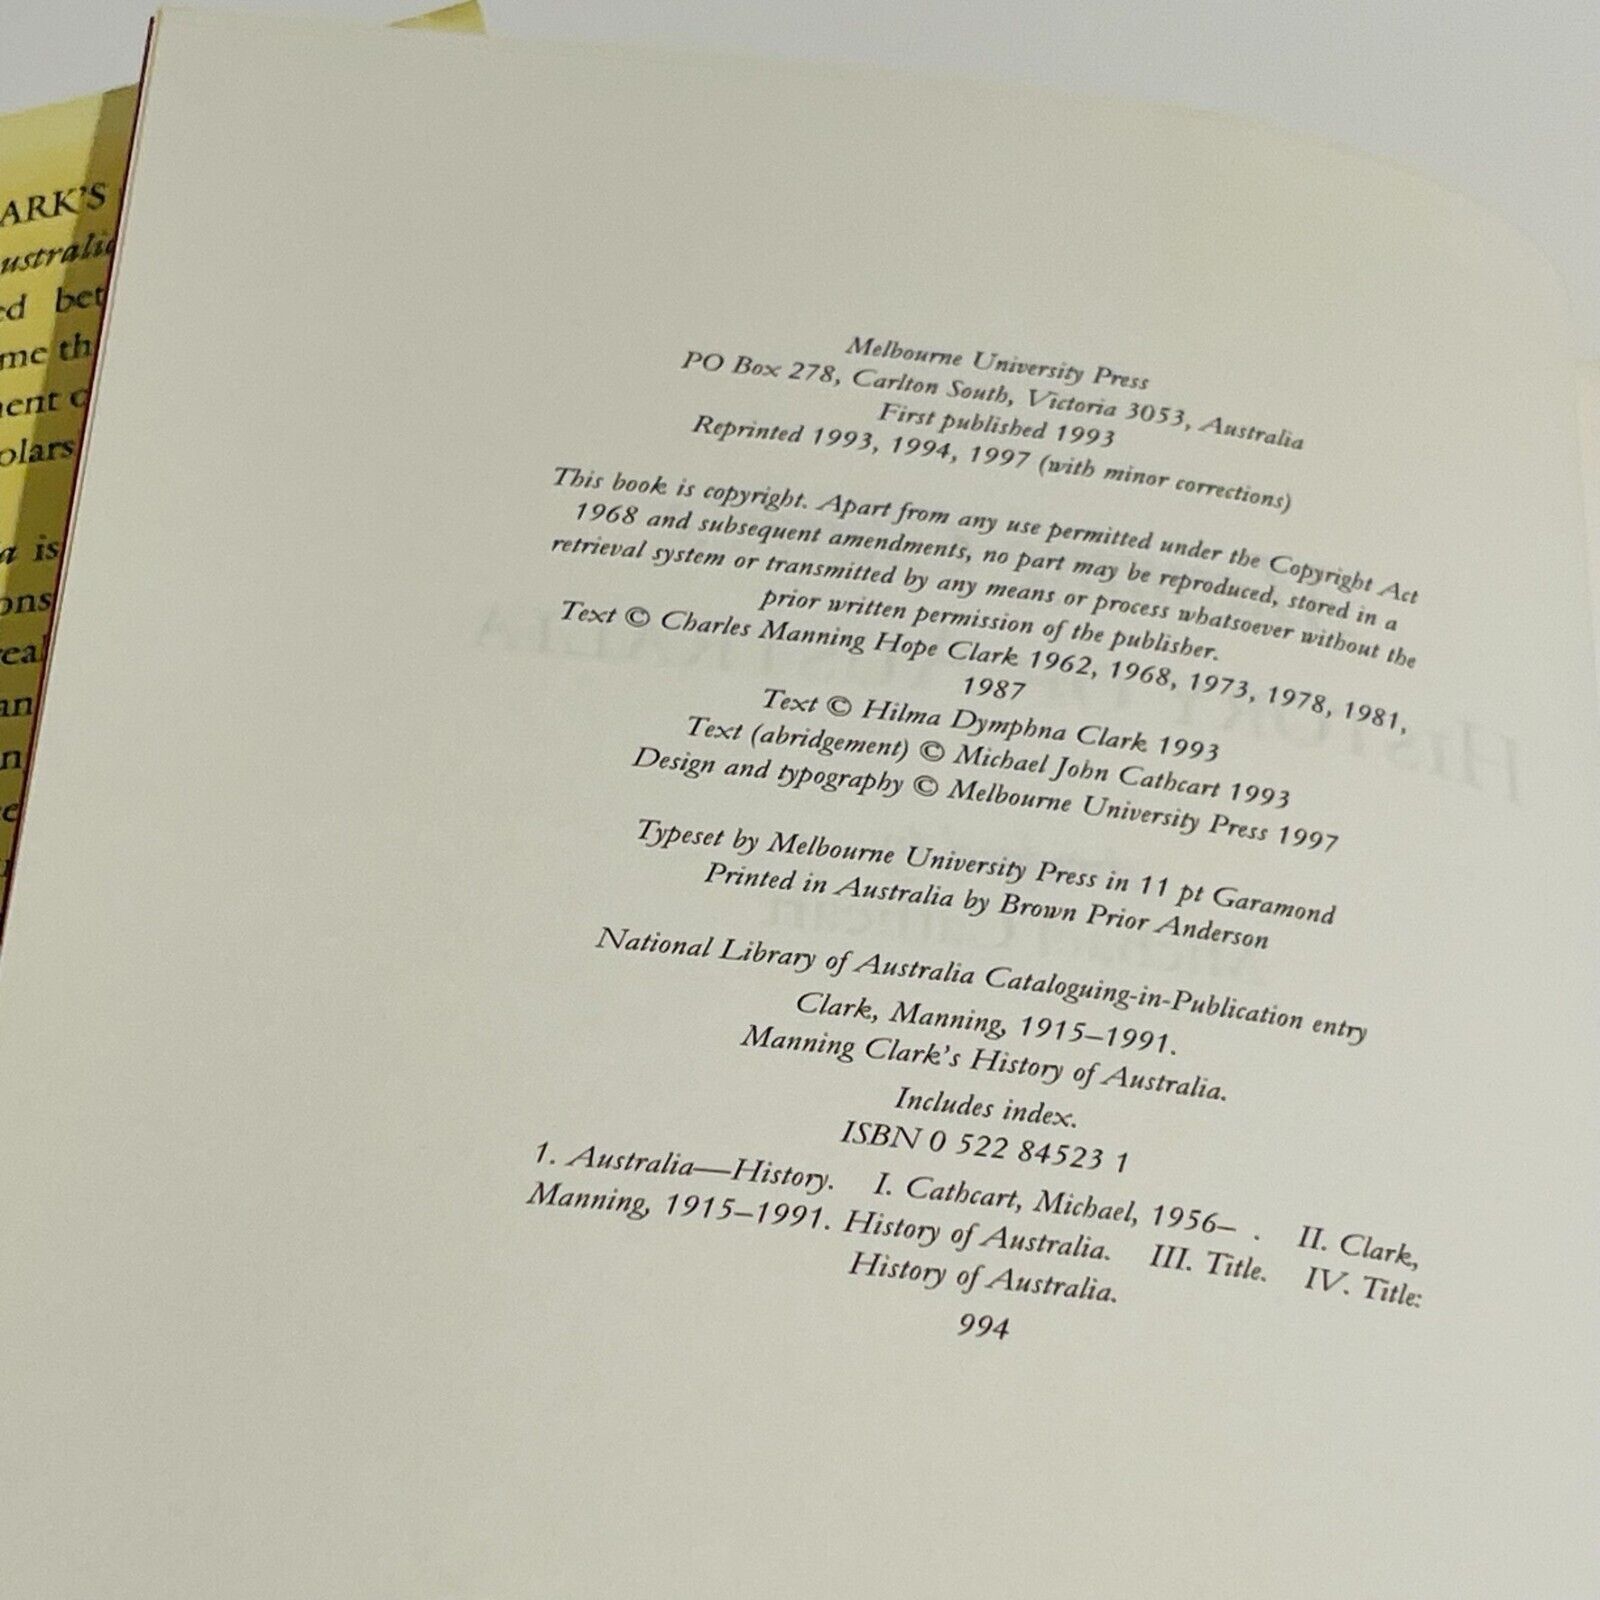 ARK'S
ustralia
ed bet
me th
nent o
olars
a is
ons
real
an
n
Melbourne University Press
PO Box 278, Carlton South, Victoria 3053, Australia
First published 1993
Reprinted 1993, 1994, 1997 (with minor corrections)
This book is copyright. Apart from any use permitted under the Copyright Act
1968 and subsequent amendments, no part may be reproduced, stored in a
retrieval system or transmitted by any means or process whatsoever without the
prior written permission of the publisher.
Text © Charles Manning Hope Clark 1962, 1968, 1973, 1978, 1981,
1987
Text © Hilma Dymphna Clark 1993
Text (abridgement) © Michael John Cathcart 1993
Design and typography © Melbourne University Press 1997
Typeset by Melbourne University Press in 11 pt Garamond
Printed in Australia by Brown Prior Anderson
National Library of Australia Cataloguing-in-Publication entry
Clark, Manning, 1915–1991.
Manning Clark's History of Australia.
Includes index.
ISBN 0 522 84523 1
1. Australia—History. I. Cathcart, Michael, 1956– . II. Clark,
Manning, 1915–1991. History of Australia. III. Title. IV. Title:
History of Australia.
994